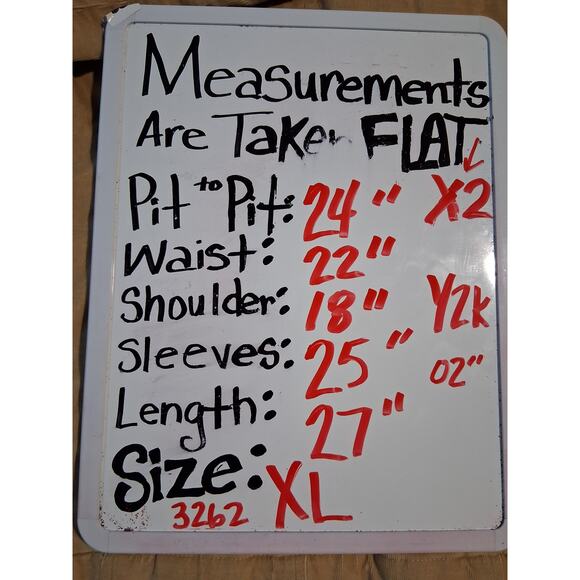 Measurements
Are Taken FLAT
Pit to Pit: 24" X2
Waist: 22"
Shoulder: 18" Y2K
Sleeves: 25" 02"
Length: 27"
Size: XL
3262